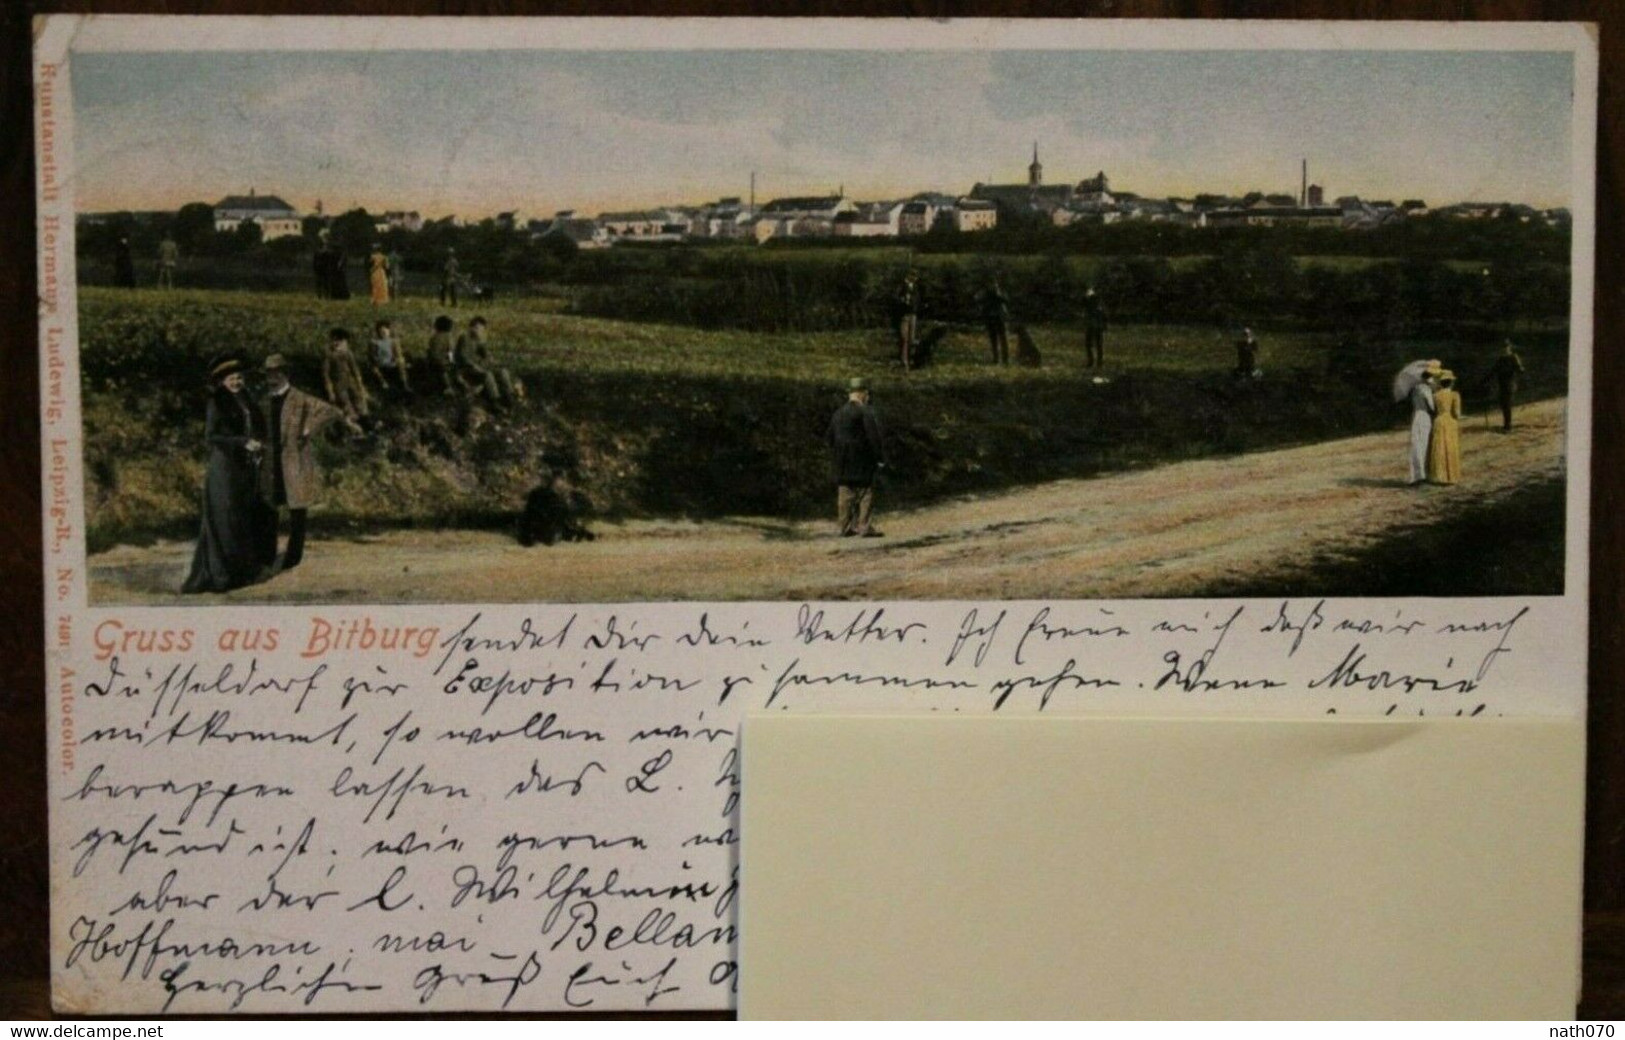 Kunstanstalt Hermann Ludewig, Leipzig-R., No. 7491 Autocolor.
Gruss aus Bitburg sendet Dir Dein Vetter. Ich freue mich daß wir nach
Düsseldorf zur Exposition zusammen gehen. Wenn Marie
mitkommt, so wollen wir
berappen lassen das L.
gesund ist, wie gerne
aber der l. Wilhelmin
Hoffmann, mai Bellan
Herzlichen Gruß Euch
www.delcampe.net
nath070